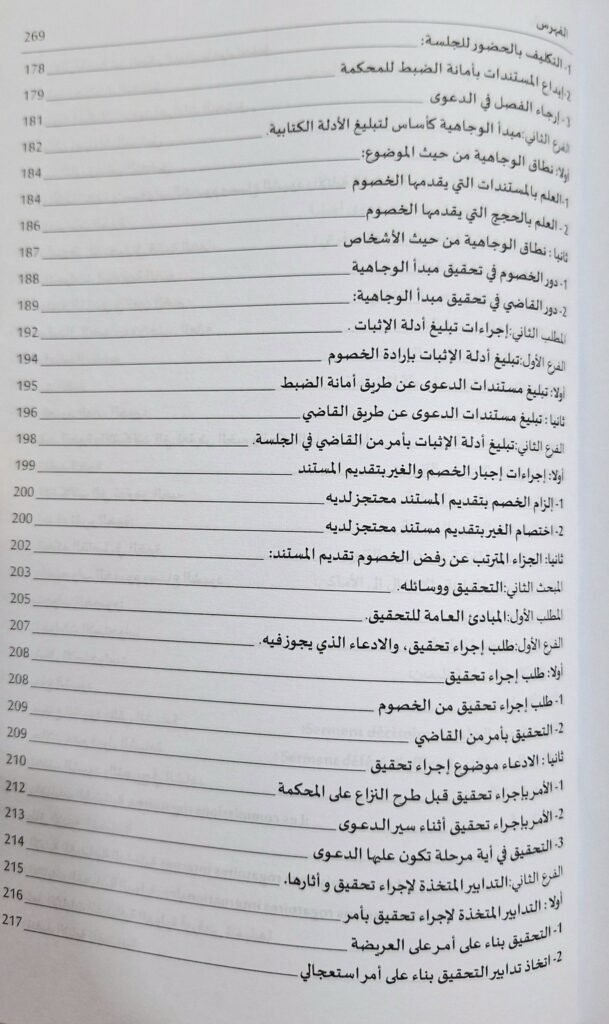 الفهرس 269
1- التكليف بالحضور للجلسة: 178
2- إيداع المستندات بأمانة الضبط للمحكمة 179
3- إرجاء الفصل في الدعوى 181
الفرع الثاني: مبدأ الوجاهية كأساس لتبليغ الأدلة الكتابية. 182
أولا: نطاق الوجاهية من حيث الموضوع: 184
1- العلم بالمستندات التي يقدمها الخصوم 184
2- العلم بالحجج التي يقدمها الخصوم 186
ثانيا: نطاق الوجاهية من حيث الأشخاص 187
1- دور الخصوم في تحقيق مبدأ الوجاهية 188
2- دور القاضي في تحقيق مبدأ الوجاهية: 189
المطلب الثاني: إجراءات تبليغ أدلة الإثبات . 192
الفرع الأول: تبليغ أدلة الإثبات بإرادة الخصوم 194
أولا: تبليغ مستندات الدعوى عن طريق أمانة الضبط 195
ثانيا: تبليغ مستندات الدعوى عن طريق القاضي 196
الفرع الثاني: تبليغ أدلة الإثبات بأمر من القاضي في الجلسة. 198
أولا: إجراءات إجبار الخصم والغير بتقديم المستند 199
1- إلزام الخصم بتقديم المستند محتجز لديه 200
2- اختصام الغير بتقديم مستند محتجز لديه 200
ثانيا: الجزاء المترتب عن رفض الخصوم تقديم المستند: 202
المبحث الثاني: التحقيق ووسائله. 203
المطلب الأول: المبادئ العامة للتحقيق. 205
الفرع الأول: طلب إجراء تحقيق، والادعاء الذي يجوز فيه. 207
أولا: طلب إجراء تحقيق 208
1- طلب إجراء تحقيق من الخصوم 208
2- التحقيق بأمر من القاضي 209
ثانيا: الادعاء موضوع إجراء تحقيق 209
1- الأمر بإجراء تحقيق قبل طرح النزاع على المحكمة 210
2- الأمر بإجراء تحقيق أثناء سير الدعوى 212
3- التحقيق في أية مرحلة تكون عليها الدعوى 213
الفرع الثاني: التدابير المتخذة لإجراء تحقيق و أثارها. 214
أولا: التدابير المتخذة لإجراء تحقيق بأمر 215
1- التحقيق بناء على أمر على العريضة 216
2- اتخاذ تدابير التحقيق بناء على أمر استعجالي 217